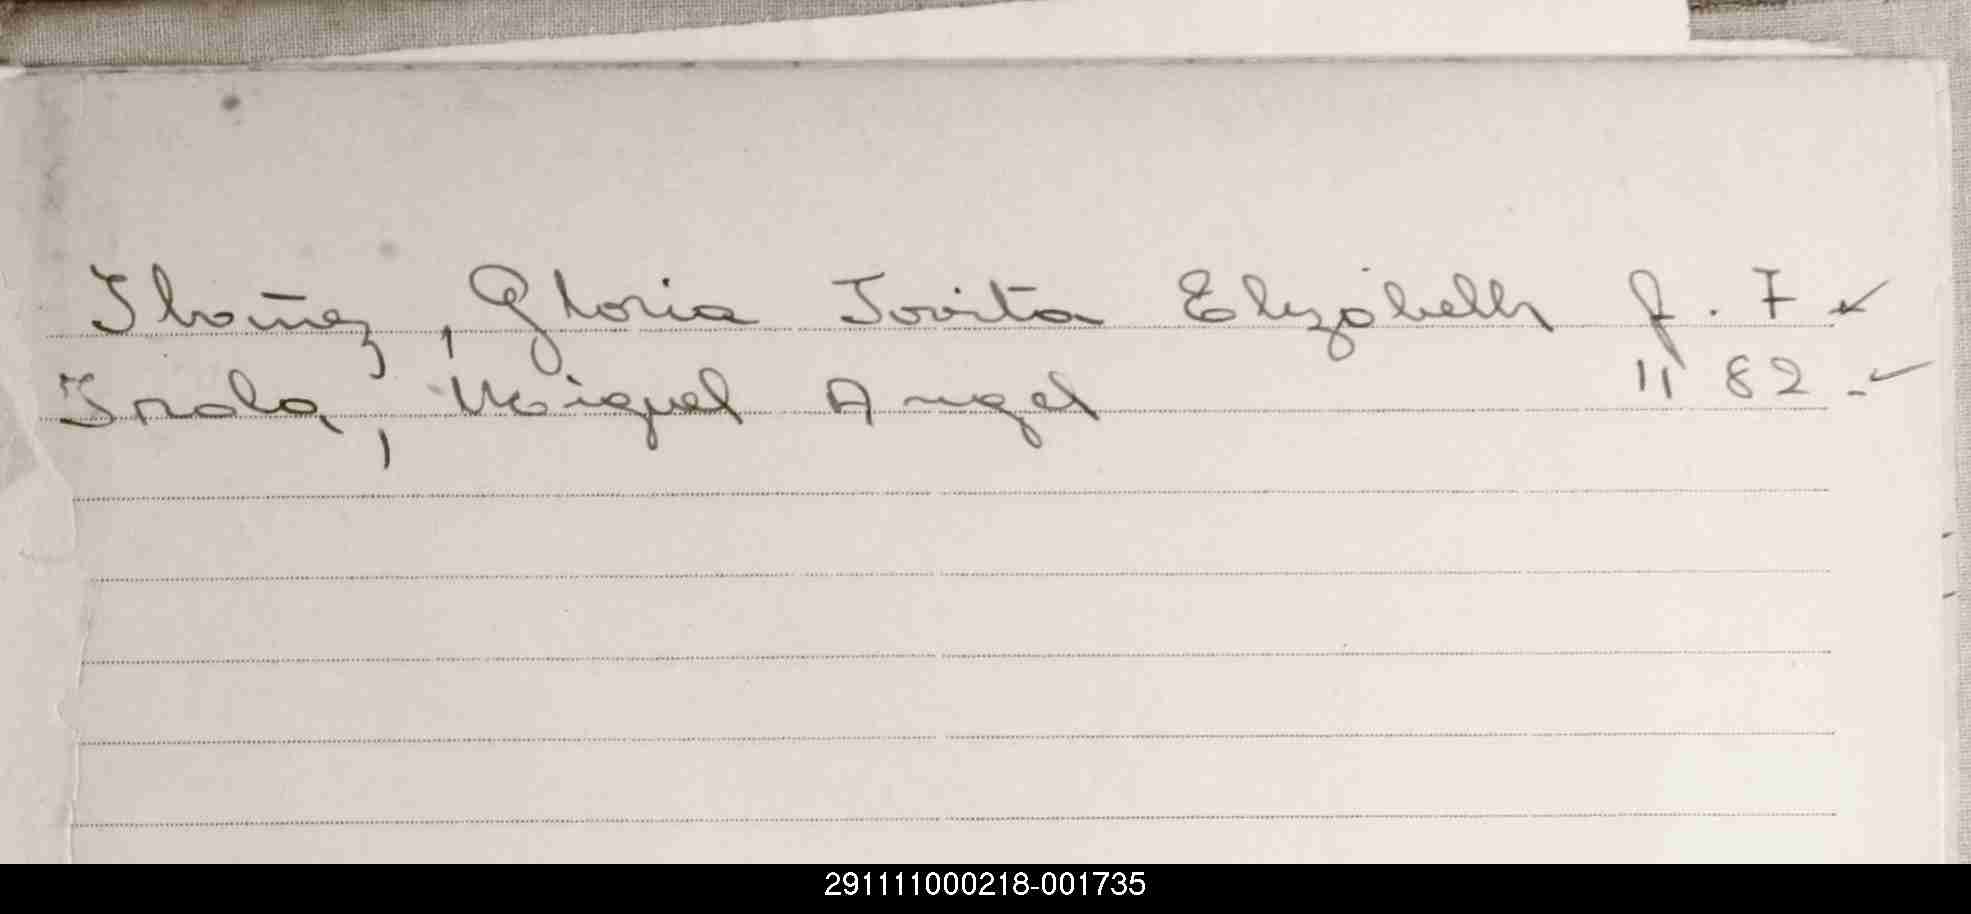 Ibañez, Gloria Jovita Elizabeth f. 7
Irala, Miguel Angel " 82.-
291111000218-001735